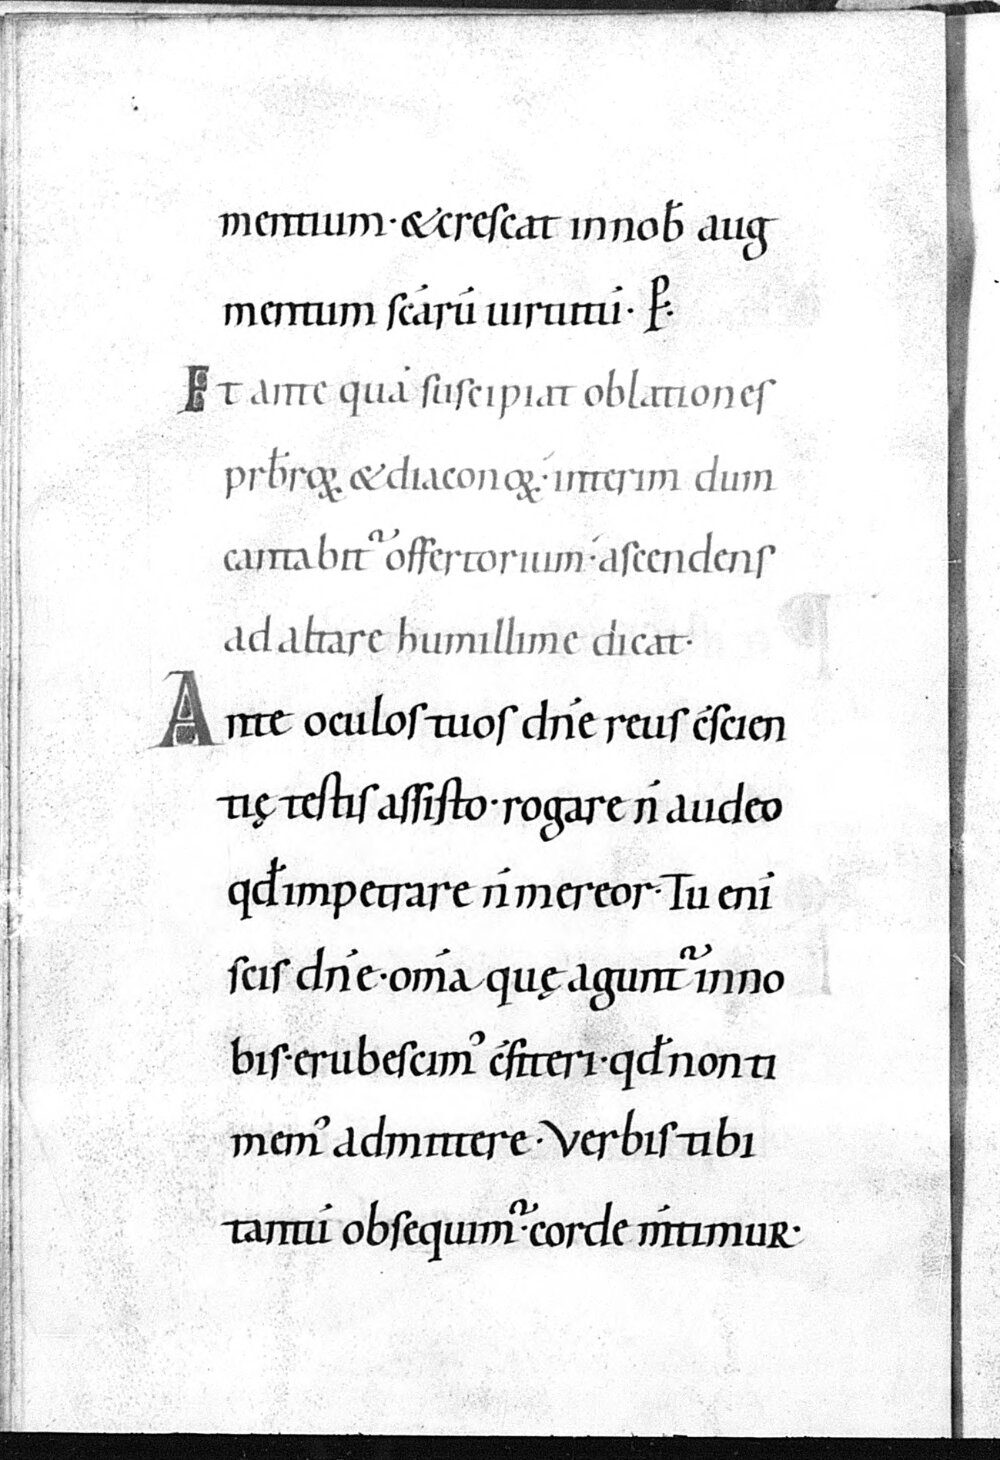 mentium· &crescat innob̅ aug
mentum sc̅aru̅ uirtutu̅· P̲·
Et ante qua̅ suscipiat oblationes
prb̅roꝝ &diaconoꝝ· interim dum
cantabit᷑ offertorium· ascendens
ad altare humillime dicat·
Ante oculos tuos dn̅e reus c̅scien
tię testis assisto· rogare n̅ audeo
qd̅ impetrare n̅ mereor· Tu eni̅
scis dn̅e· om̅a quę agunt᷑ inno
bis· erubescimꝰ c̅fiteri· qd̅ non ti
memꝰ admittere· Verbis tibi
tantu̅ obsequim᷑· corde m̅timur·